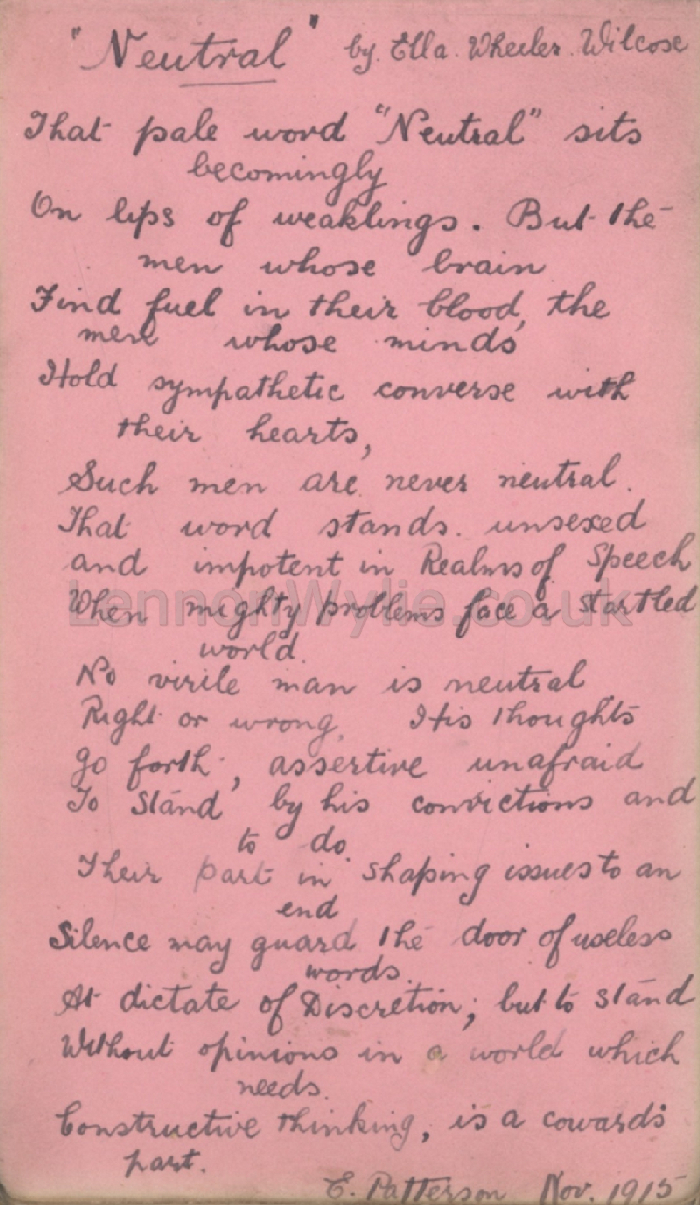 "Neutral" by Ella Wheeler Wilcose
That pale word "Neutral" sits
becomingly
On lips of weaklings. But the
men whose brain
Find fuel in their blood, the
men whose minds
Hold sympathetic converse with
their hearts,
Such men are never neutral.
That word stands. unsexed
and impotent in Realms of Speech
When mighty problems face a startled
world.
No virile man is neutral.
Right or wrong, His thoughts
go forth, assertive unafraid
To stand by his convictions and
to do.
Their part in shaping issues to an
end
Silence may guard the door of useless
words.
At dictate of Discretion; but to stand
Without opinions in a world which
needs.
Constructive thinking, is a cowards
part.
E. Patterson Nov. 1915
LennonWylie.co.uk